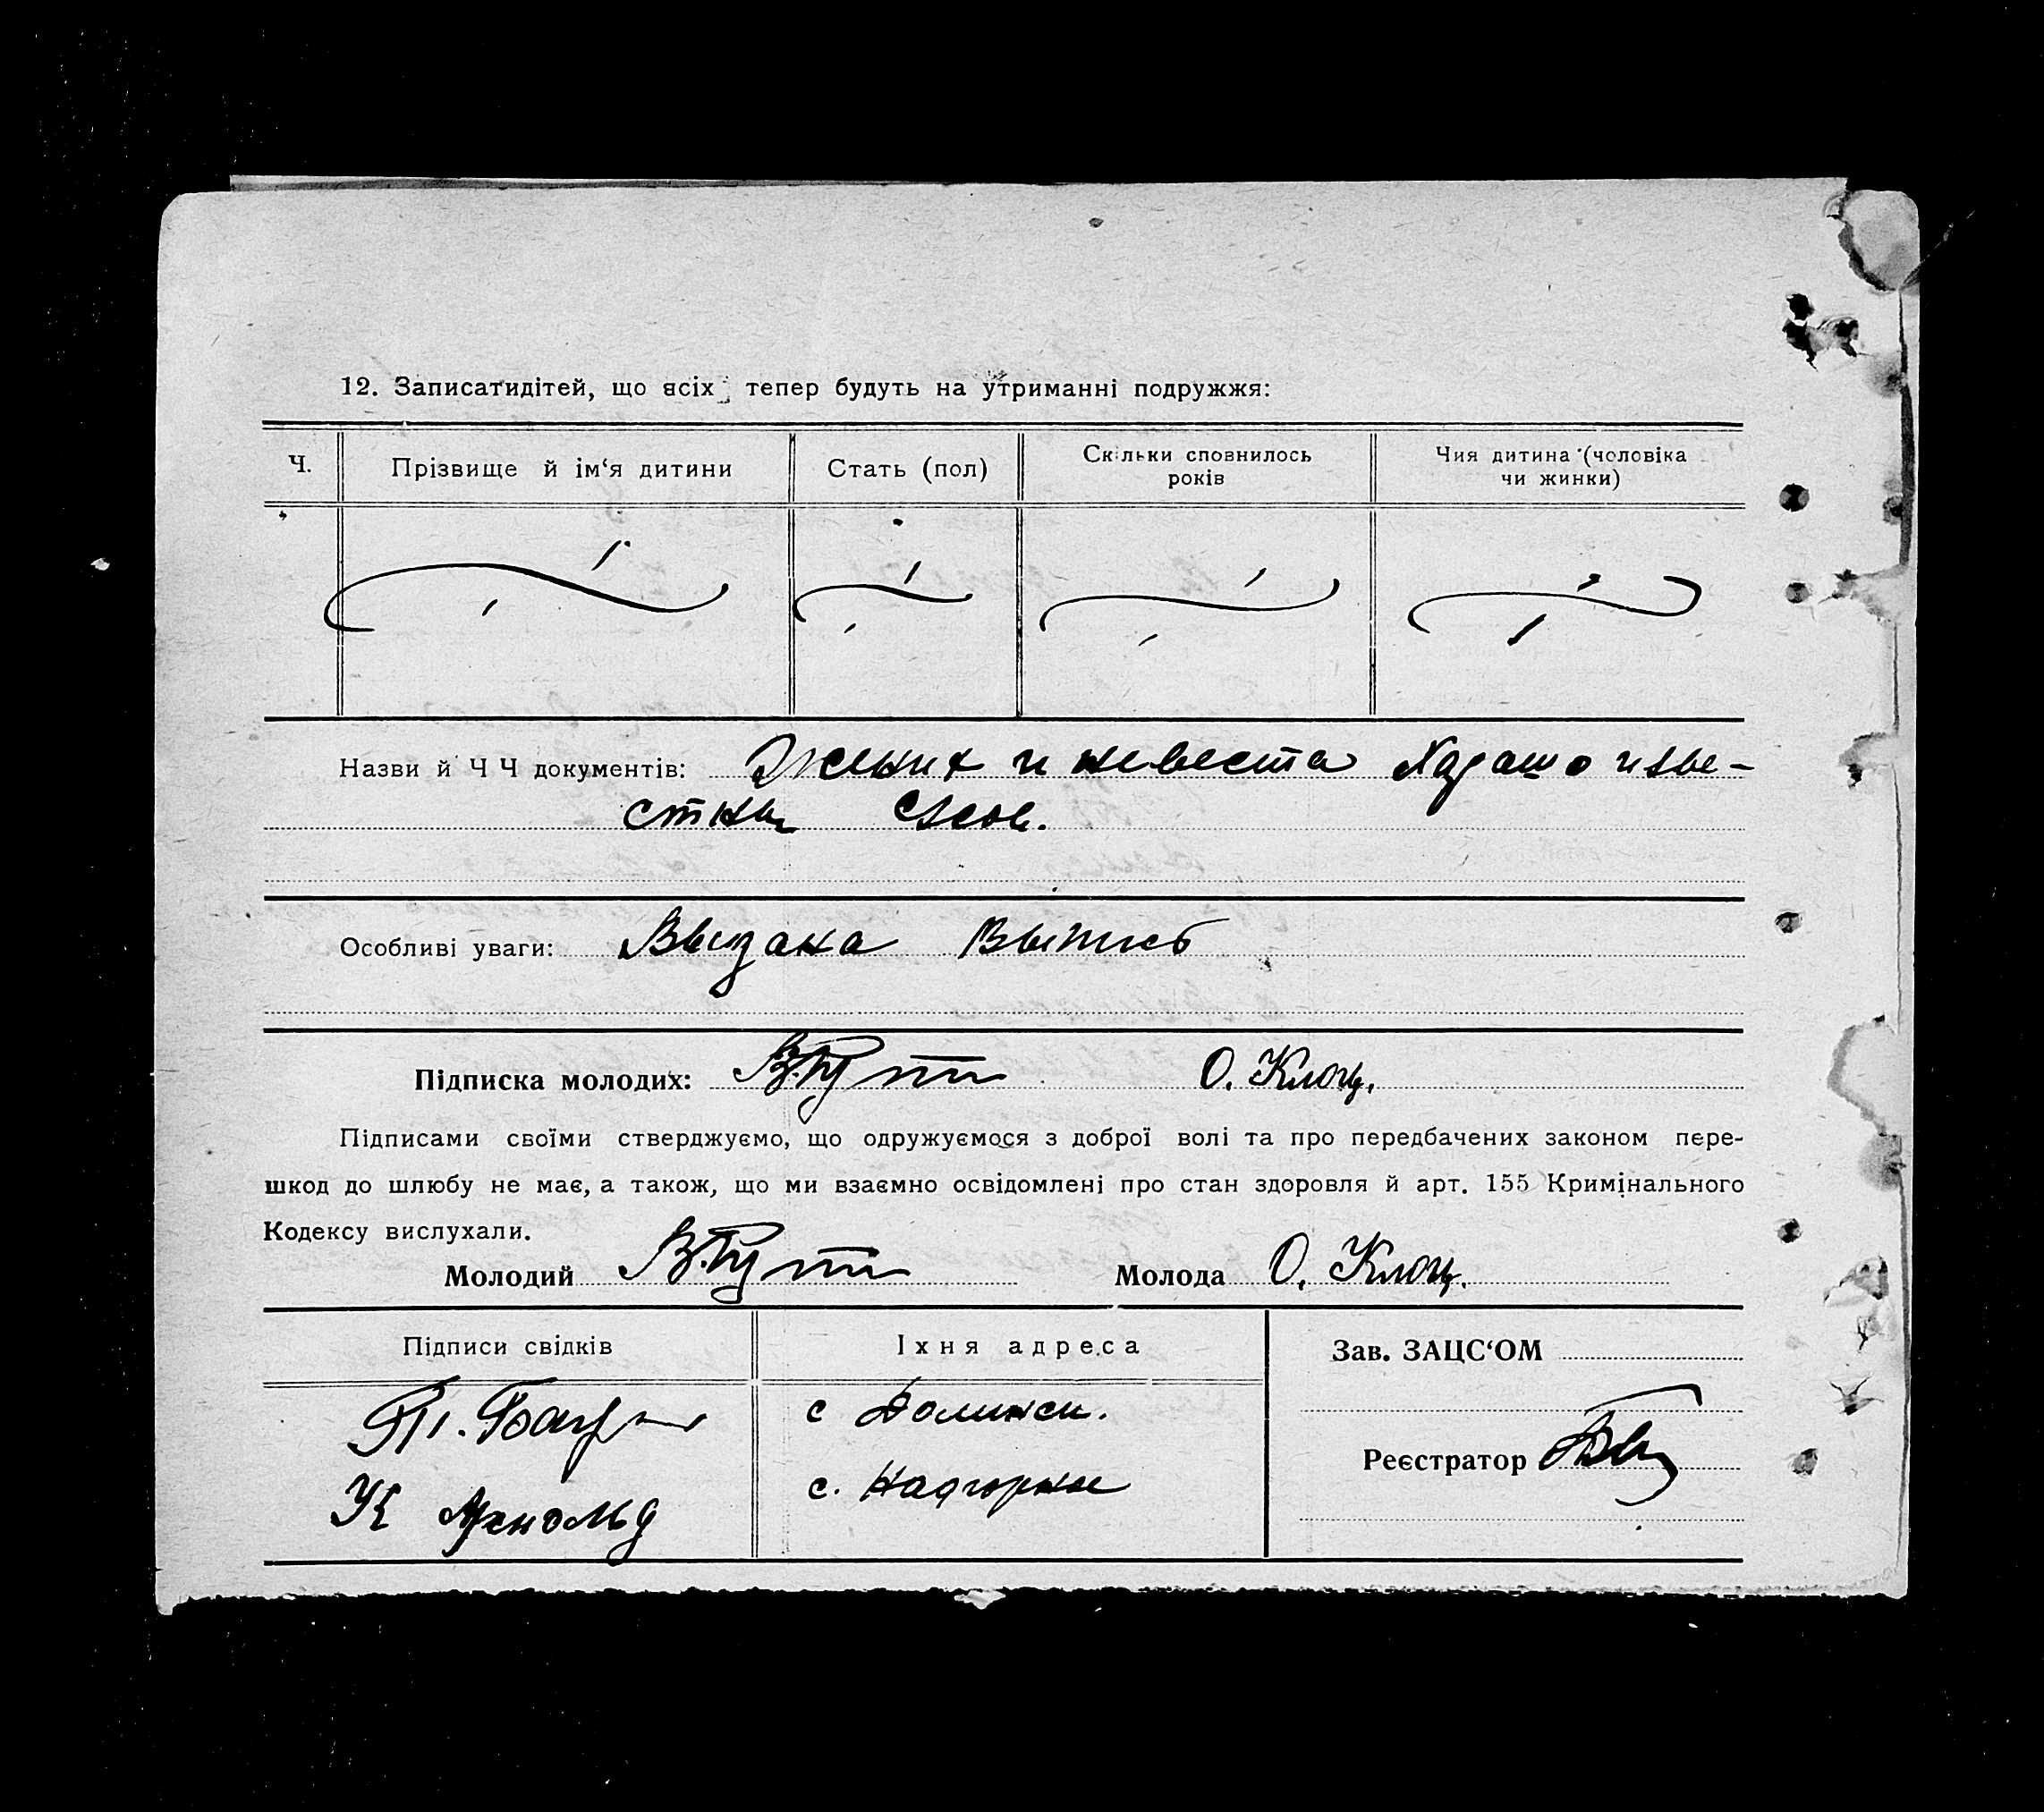 12. Записатидітей, що всіх тепер будуть на утриманні подружжя:
Ч. Прізвище й ім‘я дитини Стать (пол) Скільки сповнилось років Чия дитина (чоловіка чи жинки)
Назви й Ч Ч документів: Жених и невеста Харашо изве-
стны
Особливі уваги: Выдана Выпись
Підписка молодих: О. Клоц.
Підписами своїми стверджуємо, що одружуємося з доброї волі та про передбачених законом пере-
шкод до шлюбу не має, а також, що ми взаємно освідомлені про стан здоровля й арт. 155 Кримінального
Кодексу вислухали.
Молодий Молода О. Клоц.
Підписи свідків Їхня адреса Зав. ЗАЦС‘ОМ
с Долинск.
Реєстратор
К Арнольд с. Надгорное